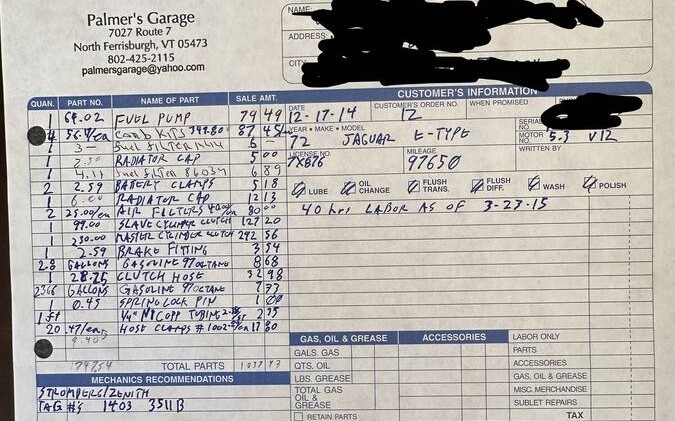 Palmer's Garage
7027 Route 7
North Ferrisburgh, VT 05473
802-425-2115
palmersgarage@yahoo.com
NAME:
ADDRESS:
CITY
CUSTOMER'S INFORMATION
QUAN. PART NO. NAME OF PART SALE AMT.
DATE 12-17-14 CUSTOMER'S ORDER NO. 12 WHEN PROMISED
YEAR • MAKE • MODEL 72 JAGUAR E-TYPE SERIAL NO. MOTOR NO. 5.3 V12
LICENSE NO. 7X876 MILEAGE 97650 WRITTEN BY
LUBE OIL CHANGE FLUSH TRANS. FLUSH DIFF. WASH POLISH
40 hrs LABOR AS OF 3-23-15
1 64.02 FUEL PUMP 79 49
4 56.4/ea CARB KITS 349.80 87 45
1 3- fuel filter 6 -
1 2.50 RADIATOR CAP 5 00
1 4.11 fuel filter 86034 6 89
2 2.59 BATTERY CLAMPS 5 18
1 6.00 RADIATOR CAP 12 13
2 25.00/ea AIR FILTERS 40.00/ea 80 00
1 99.00 SLAVE CYLINDER CLUTCH 127 20
1 230.00 MASTER CYLINDER CLUTCH 292 56
1 2.59 BRAKE FITTING 3 54
GALLONS GASOLINE 97 OCTANE 8 68
1 28.75 CLUTCH HOSE 32 98
GALLONS GASOLINE 97 OCTANE 7 33
1 0.45 SPRING LOCK PIN 1 00
1 ft 1/4" NI COPP TUBING 2 35
20 .47/ea HOSE CLAMPS # 1002 17 80
TOTAL PARTS
MECHANICS RECOMMENDATIONS
STROMBERG/ZENITH
TAG #S 1403 3511B
GAS, OIL & GREASE ACCESSORIES
GALS. GAS
QTS. OIL
LBS. GREASE
TOTAL GAS OIL & GREASE
RETAIN PARTS
LABOR ONLY
PARTS
ACCESSORIES
GAS, OIL & GREASE
MISC. MERCHANDISE
SUBLET REPAIRS
TAX